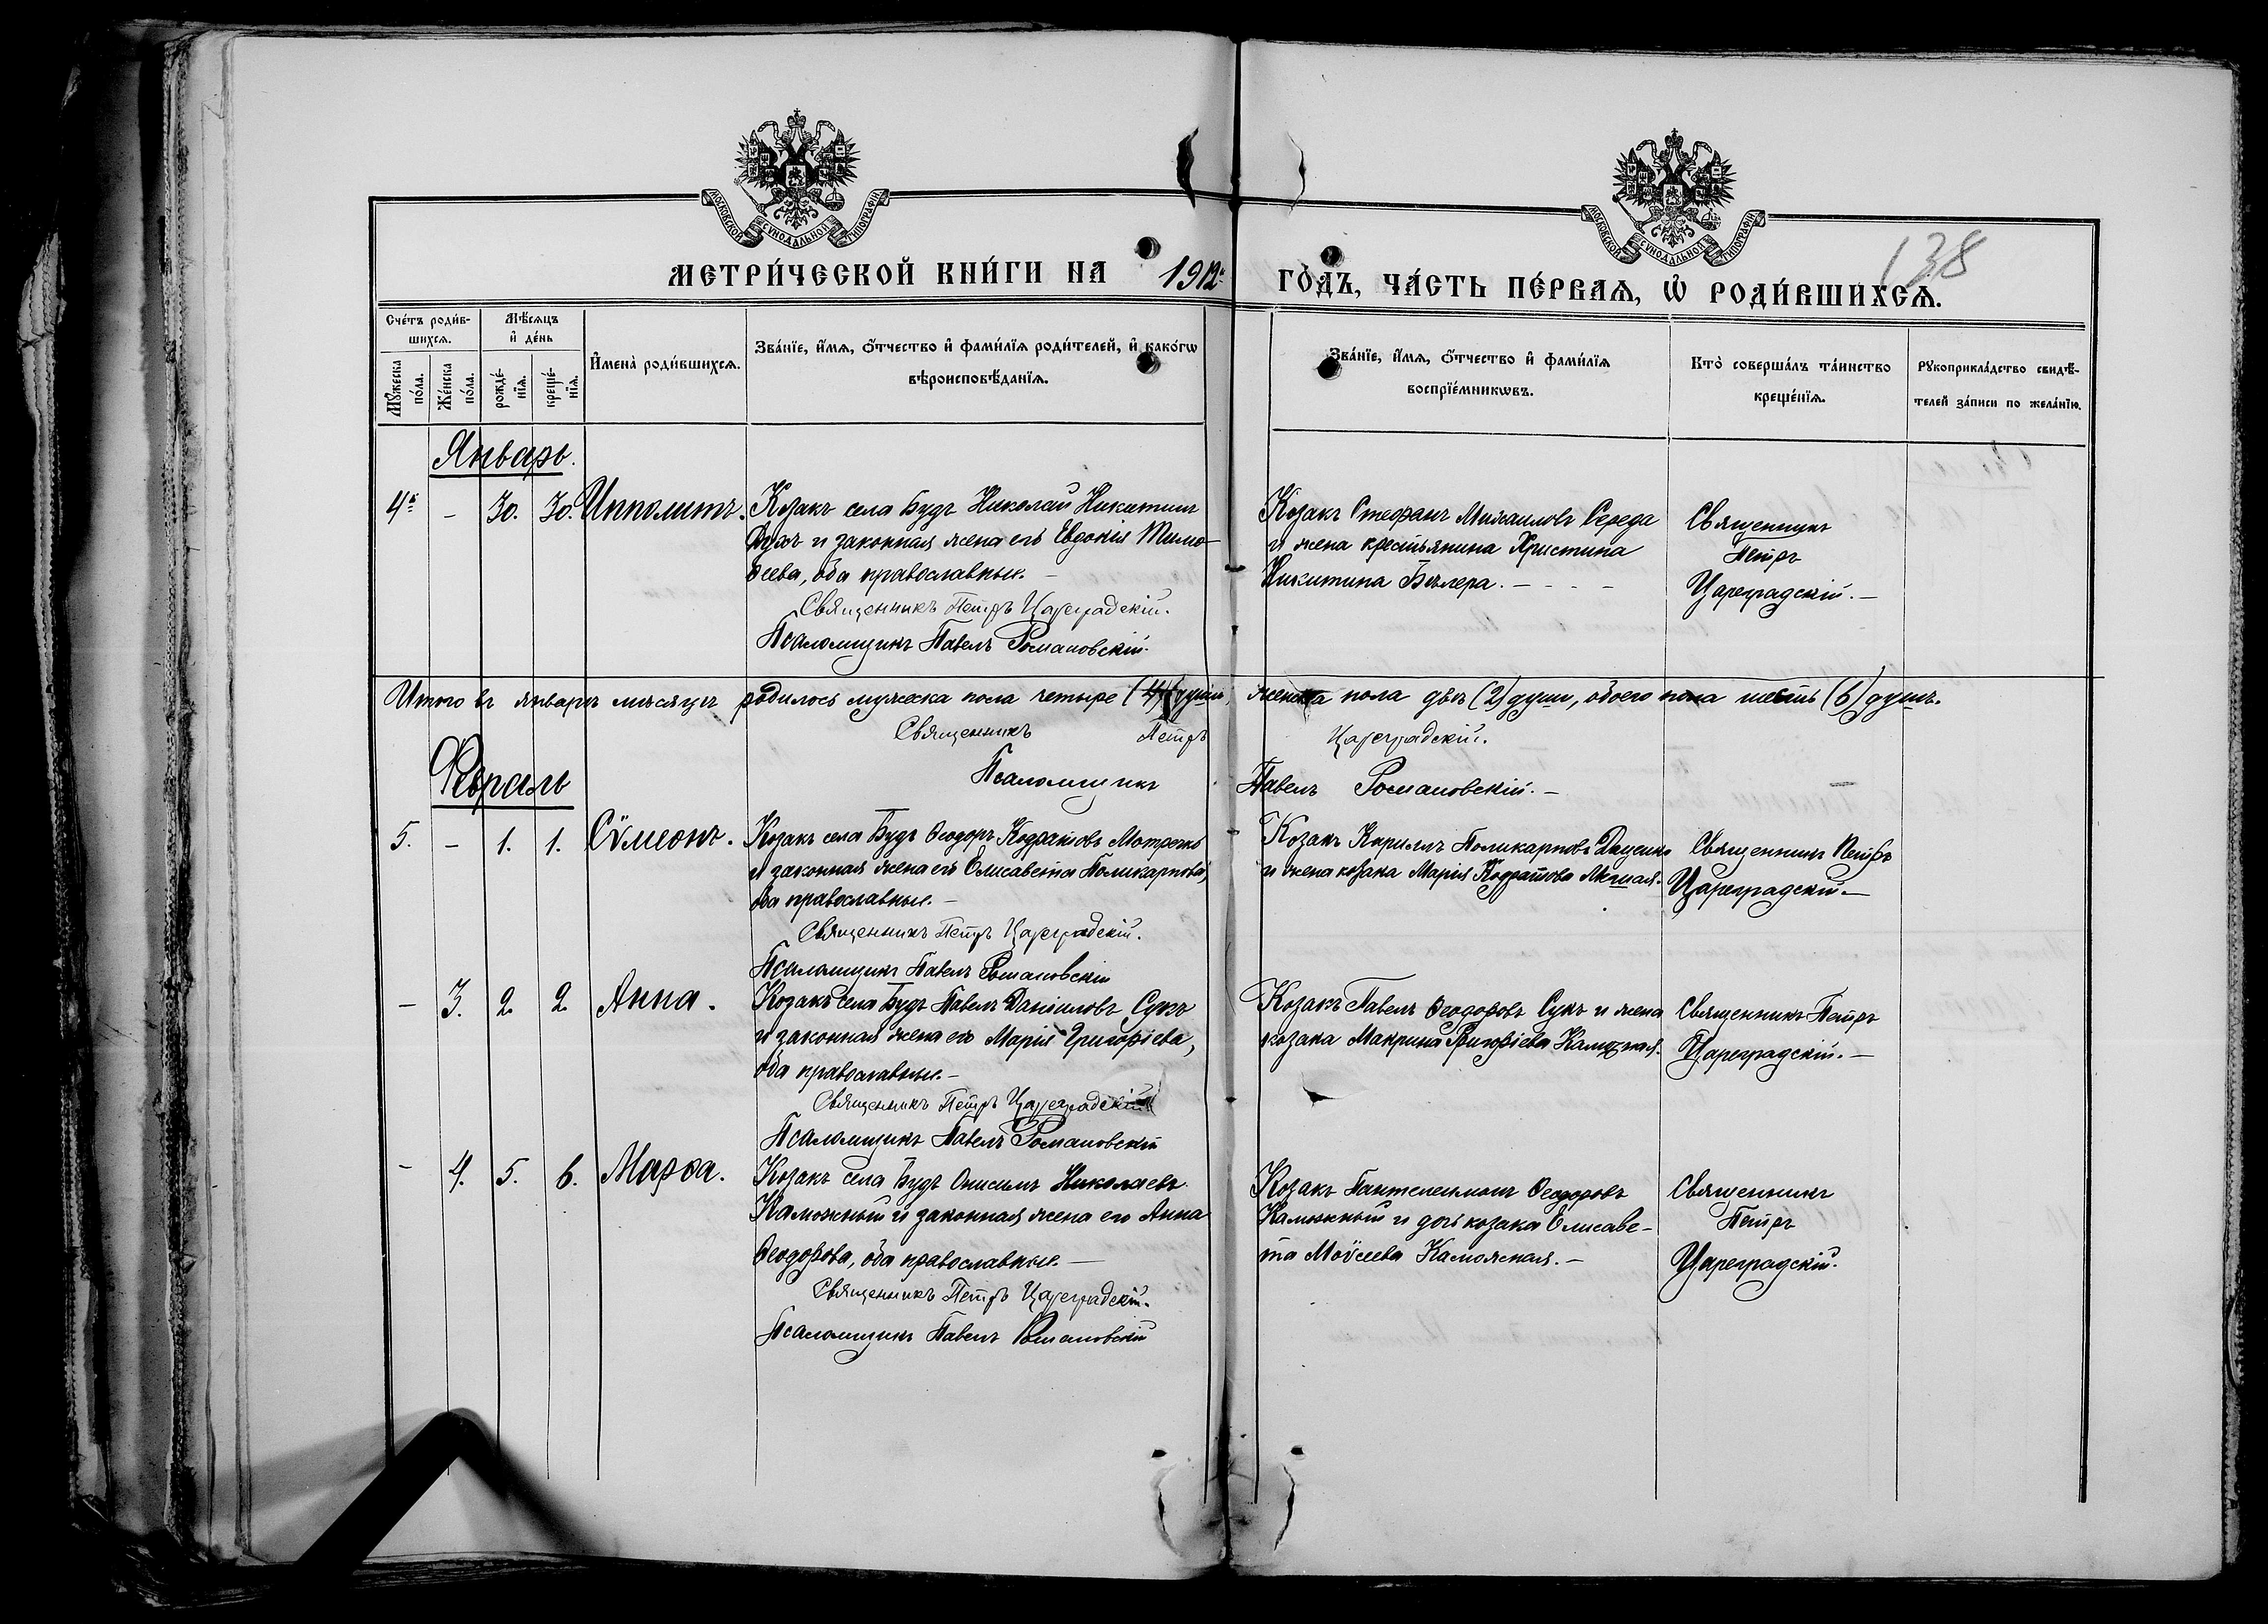 МОСКОВСКОЙ СѴНОДАЛЬНОЙ ТИПОГРАФІИ
МОСКОВСКОЙ СѴНОДАЛЬНОЙ ТИПОГРАФІИ
138
МЕТРИ́ЧЕСКОЙ КНИ́ГИ НА 1912 ГО́ДЪ, ЧА́СТЬ ПЕ́РВАѦ, Ѡ҆ РОДИ́ВШИХСѦ.
Сче́тъ роди́в-
шихсѧ.
Мꙋ́жеска
по́ла.
Же́нска
по́ла.
Мѣ́сѧцъ
и҆ де́нь
рожде́-
нїѧ.
креще́-
нїѧ.
И҆мена̀ роди́вшихсѧ.
Зва́нїе, и҆́мѧ, ѻ҆́тчество и҆ фами́лїѧ роди́телей, и҆ како́гѡ
вѣроисповѣ́данїѧ.
Зва́нїе, и҆́мѧ, ѻ҆́тчество и҆ фами́лїѧ
воспрїе́мникѡвъ.
Кто̀ соверша́лъ та́инство
креще́нїѧ.
Рꙋкоприкла́дство свидѣ́-
телей за́писи по жела́нїю.
Январь.
4й - 30. 30. Ипполитъ.
Козакъ села Будъ Николай Никитинъ
и законная жена его Евдокія Тимо-
ѳеева, оба православные. -
Священникъ Петръ Цареградскій.
Псаломщикъ Павелъ Романовскій.
Козакъ Стефанъ Михаиловъ Середа
и жена крестьянина Христина
Никитина
Священникъ
Петръ
Цареградскій. -
Итого въ январѣ мѣсяцѣ родилось мужеска пола четыре (4) души, женска пола двѣ (2) души, обоего пола шесть (6) душъ.
Священникъ Петръ Цареградскій.
Псаломщикъ Павелъ Романовскій. -
Февраль
5. - 1. 1. Сѵмеонъ.
Козакъ села Будъ Ѳеодоръ Кодратовъ
и законная жена его Елисавета Поликарпова,
оба православные. -
Священникъ Петръ Цареградскій.
Псаломщикъ Павелъ Романовскій
Козакъ Кириллъ Поликарповъ Даценко
и жена козака Марія Кодратова
Священникъ Петръ
Цареградскій -
- 3. 2. 2 Анна.
Козакъ села Будъ Павелъ Даніиловъ Сукъ
и законная жена его Марія Григоріева,
оба православные. -
Священникъ Петръ Цареградскій
Псаломщикъ Павелъ Романовскій
Козакъ Павелъ Ѳеодоровъ Сукъ и жена
козака Макрина Григоріева Каможная.
Священникъ Петръ
Цареградскій. -
- 4. 5. 6. Марѳа.
Козакъ села Будъ Онисимъ Николаевъ
Каможный и законная жена его Анна
Ѳеодорова, оба православные. -
Священникъ Петръ Цареградскій.
Псаломщикъ Павелъ Романовскій
Козакъ Пантелеимонъ Ѳеодоровъ
Каможный и дочь козака Елисаве-
та Моѵсеева Каможная. -
Священникъ
Петръ
Цареградскій.